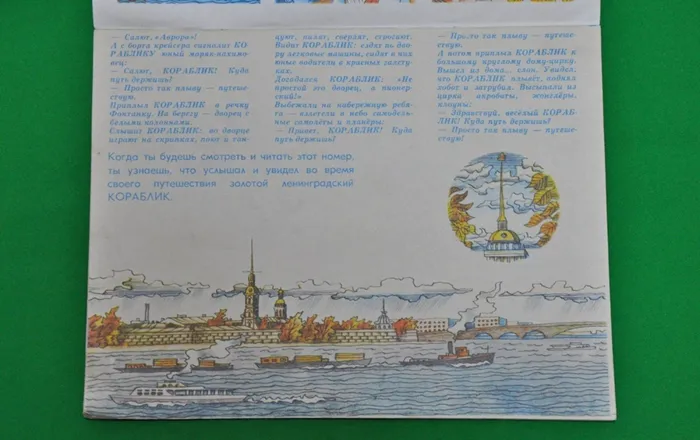 — Салют, «Аврора»!
А с борта крейсера сигналит КО-
РАБЛИКУ юный моряк-нахимо-
вец:
— Салют, КОРАБЛИК! Куда
путь держишь?
— Просто так плыву — путеше-
ствую.
Приплыл КОРАБЛИК в речку
Фонтанку. На берегу — дворец с
белыми колоннами.
Слышит КОРАБЛИК: во дворце
играют на скрипках, поют и тан-
цуют, пилят, сверлят, строгают.
Видит КОРАБЛИК: ездят по дво-
ру легковые машины, сидят в них
юные водители в красных галсту-
ках.
Догадался КОРАБЛИК: «Не
простой это дворец, а пионер-
ский!»
Выбежали на набережную ребя-
та — взлетели в небо самодель-
ные самолёты и планёры:
— Привет, КОРАБЛИК! Куда
путь держишь?
— Просто так плыву — путеше-
ствую.
А потом приплыл КОРАБЛИК к
большому круглому дому-цирку.
Вышел из дома... слон. Увидел,
что КОРАБЛИК плывёт, поднял
хобот и затрубил. Высыпали из
цирка акробаты, жонглёры,
клоуны:
— Здравствуй, весёлый КОРАБ-
ЛИК! Куда путь держишь?
— Просто так плыву — путеше-
ствую!
Когда ты будешь смотреть и читать этот номер,
ты узнаешь, что услышал и увидел во время
своего путешествия золотой ленинградский
КОРАБЛИК.